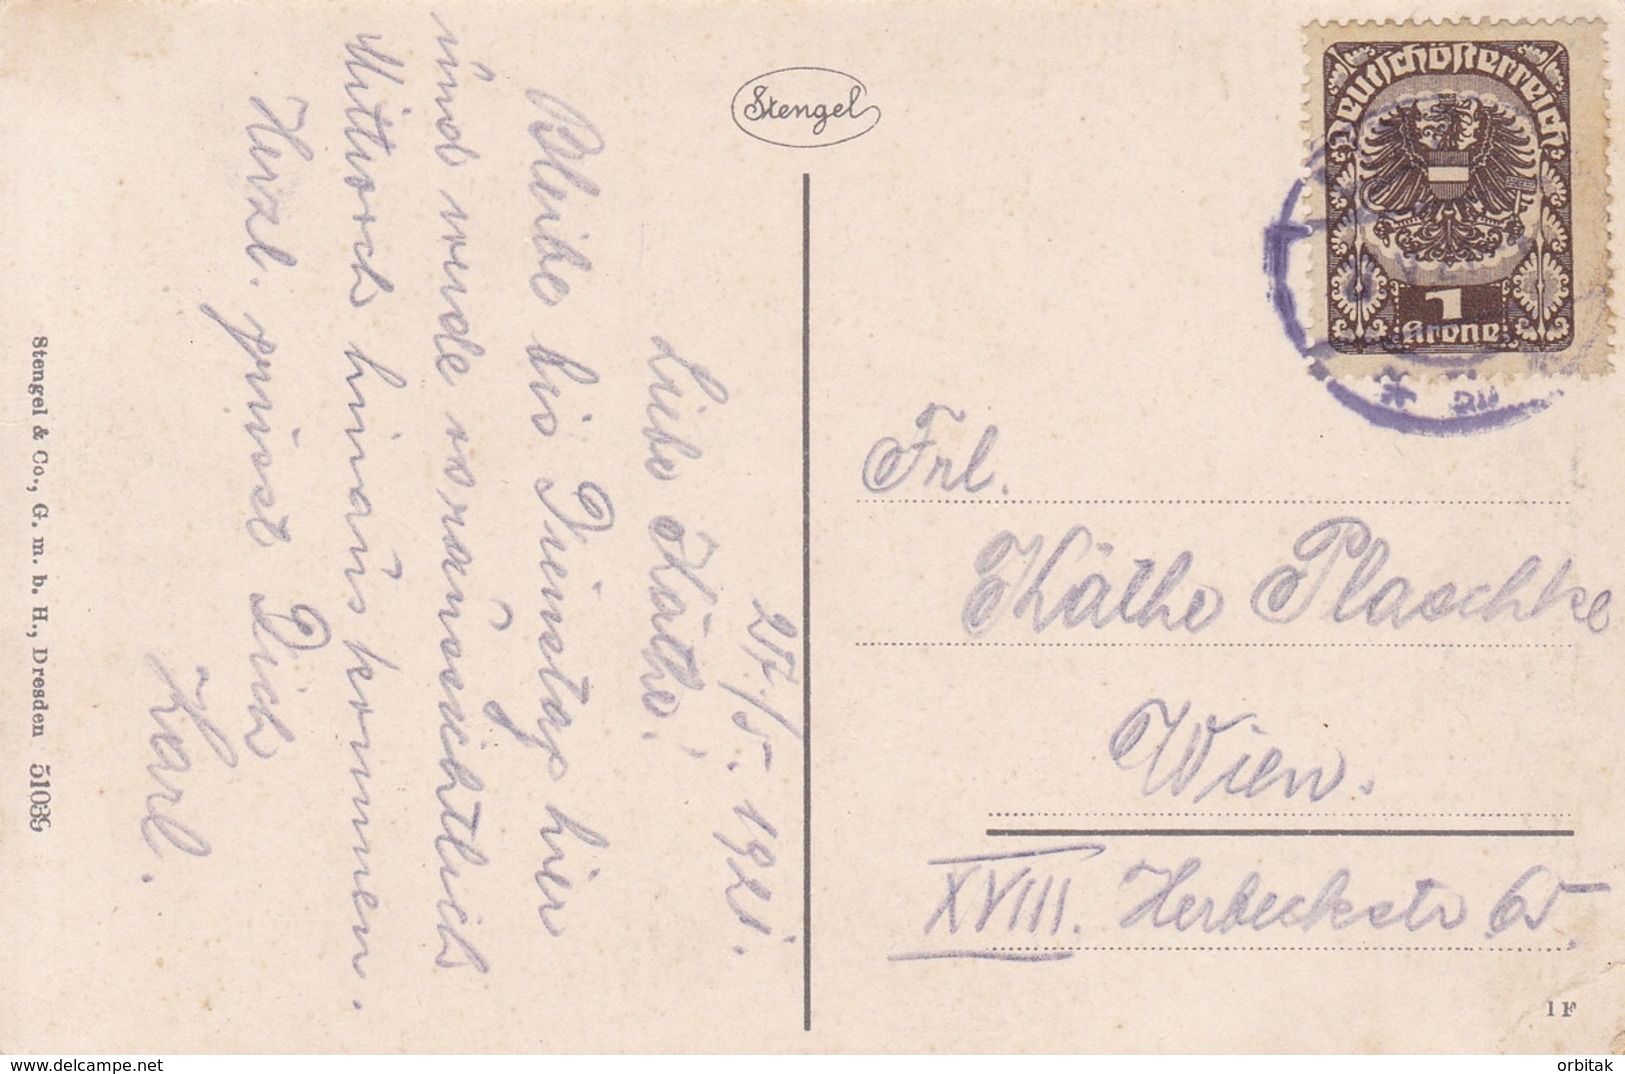 Stengel
Deutschösterreich
1
Krone
27./5. 1921.
Liebe Käthe!
Bleibe bis Dienstag hier
und werde voraussichtlich
Mittwoch hinauskommen.
Herzl. grüsst Dich
Karl.
Frl.
Käthe Plaschke
Wien.
XVIII. Herbeckstr
Stengel & Co., G. m. b. H., Dresden 51039
1 F
www.delcampe.net
orbitak